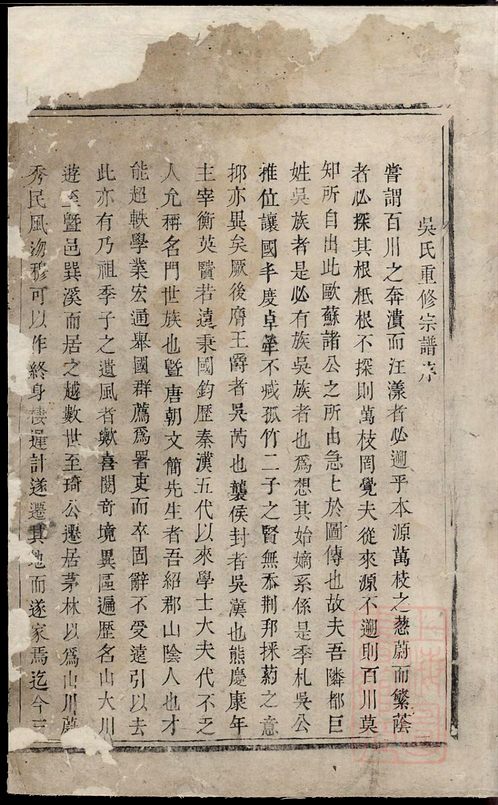 吳氏重修宗譜序
嘗謂百川之奔潰而汪漾者必遡乎本源萬枝之蔥蔚而繁蔭
者必探其根柢根不探則萬枝罔覺夫從來源不遡則百川莫
知所自出此歐蘇諸公之所由急上於圖傳也故夫吾隣都巨
姓吳族者是必有族吳族者也為想其始嫡系係是季札吳公
推位讓國丰度卓犖不減孤竹二子之賢無忝荆邦採葯之意
抑亦異矣厥後膺王爵者吳芮也襲侯封者吳漢也熊慶康年
主宰衡英賢若遠秉國鈞歷秦漢五代以來學士大夫代不乏
人允稱名門世族也暨唐朝文簡先生者吾紹郡山陰人也才
能超軼學業宏通舉國群薦為署吏而卒固辭不受遠引以去
此亦有乃祖季子之遺風者歟喜閱奇境異區遍歷名山大川
遊至暨邑巽溪而居之越數世至琦公遷居茅林以為山川蔚
秀民風沕穆可以作終身棲遲計遂遷其地而遂家焉迄今三